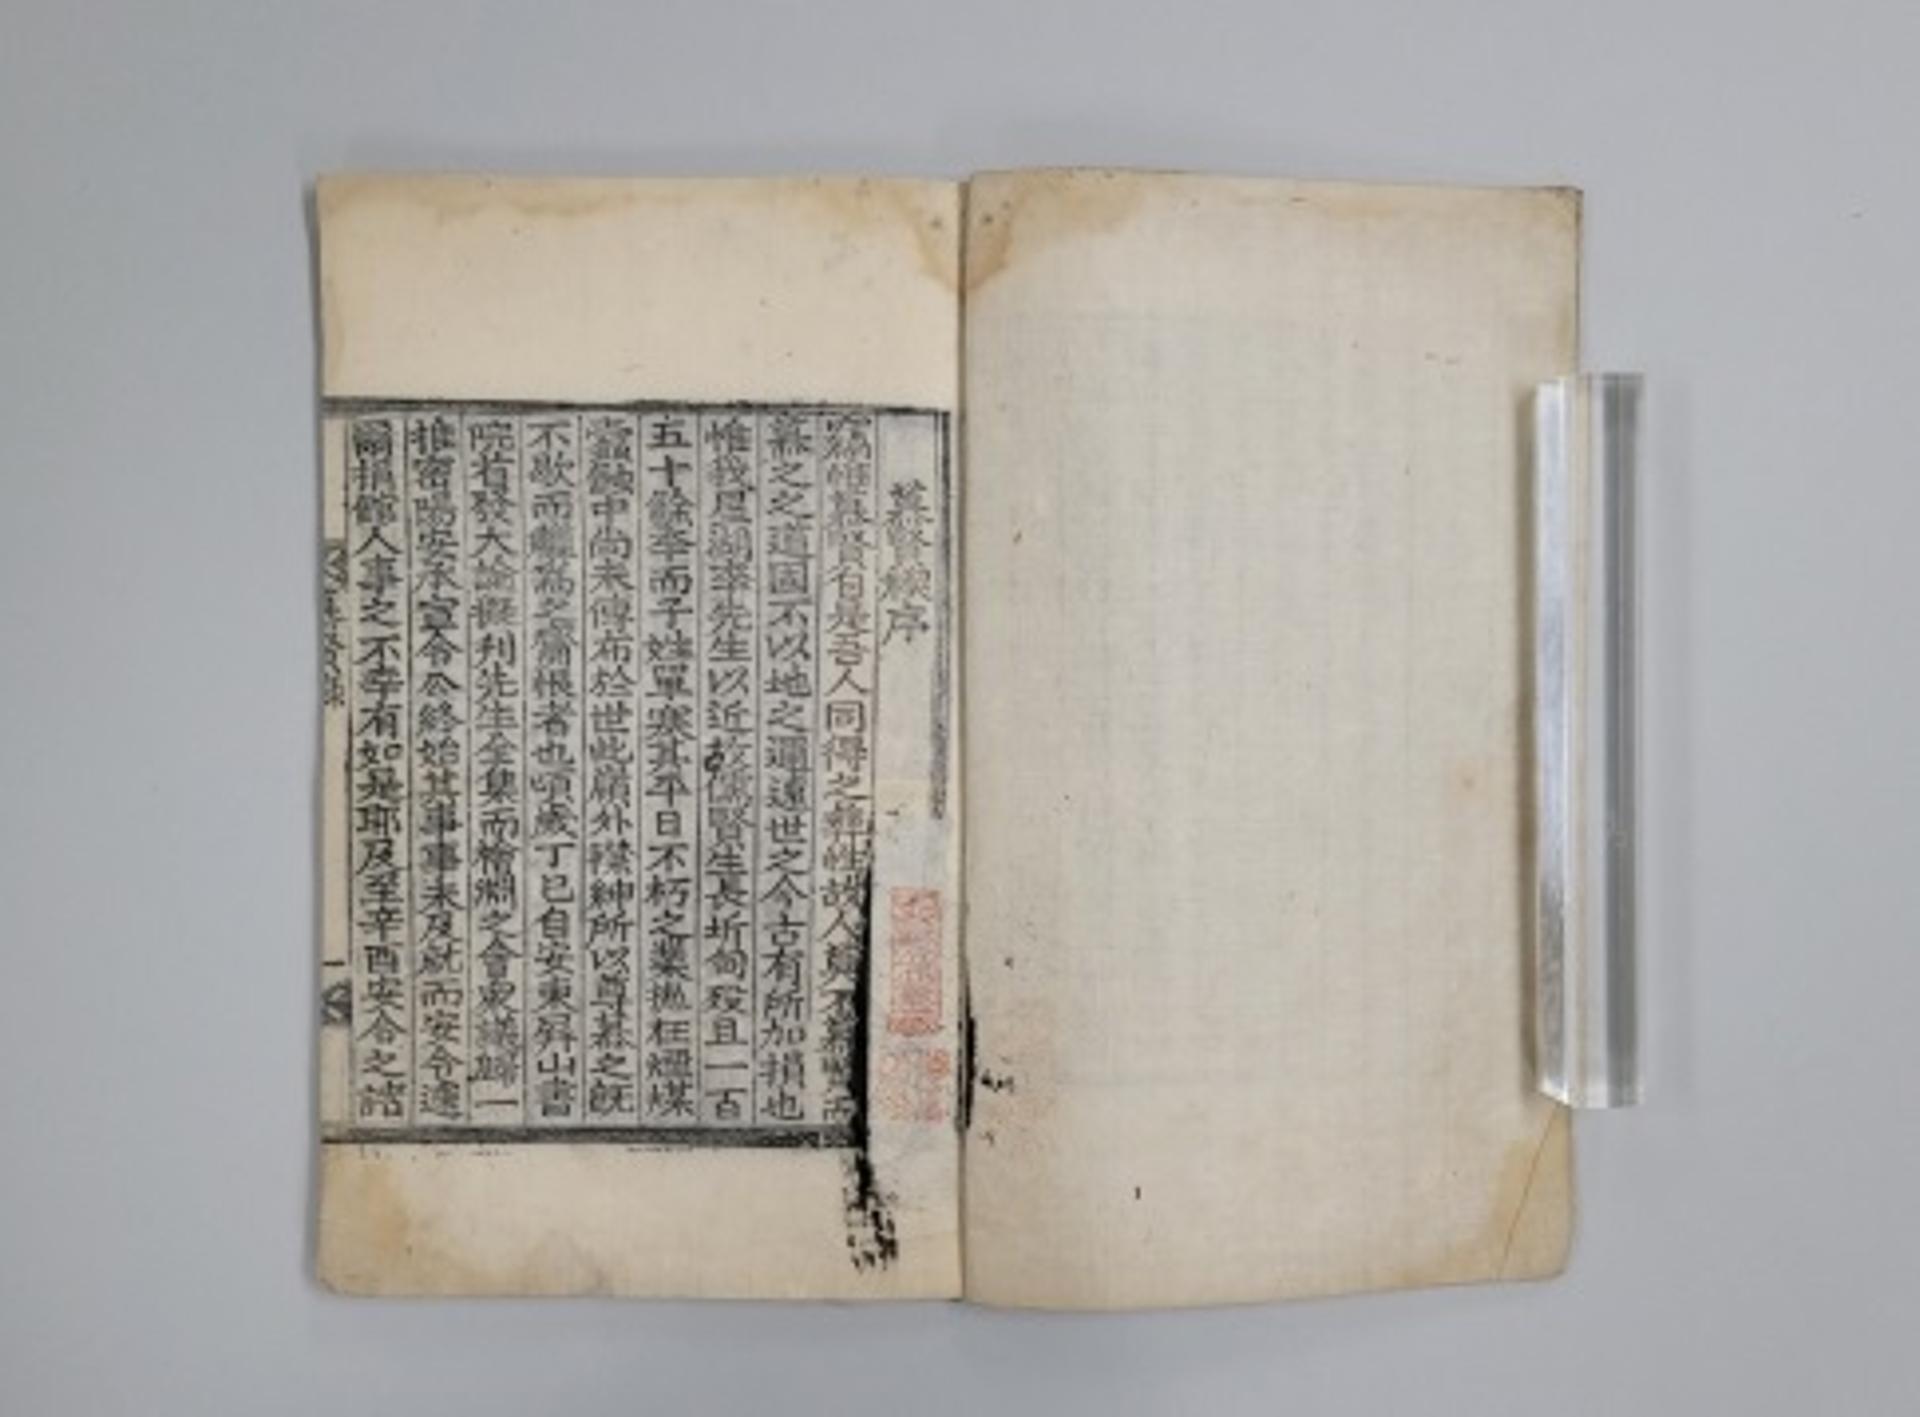 慕賢錄序
竊惟慕賢自是吾人同得之彛性故人莫不慕賢而
慕之之道固不以地之邇遠世之今古有所加損也
惟我星湖李先生以近故儒賢生長圻甸歿且一百
五十餘年而子姓單寒其平日不朽之業摭在煙煤
蠹蝕中尚未傳布於世此嶺外襟紳所以尊慕之旣
不歇而繼爲之齎恨者也頃歲丁巳自安東屛山書
院首發大論擬刊先生全集而檜淵之會衆議歸一
推密陽安承宣令公終始其事事未及就而安令遽
爾捐館人事之不幸有如是耶及至辛酉安令之諸
慕賢錄
一